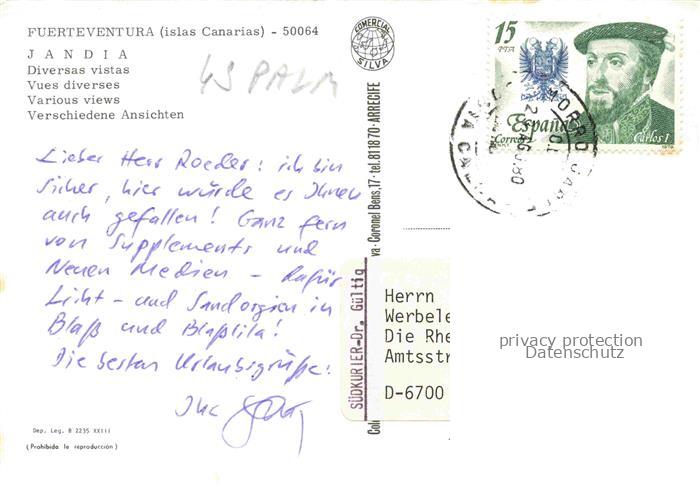 FUERTEVENTURA (islas Canarias) - 50064
JANDIA
Diversas vistas
Vues diverses
Various views
Verschiedene Ansichten
COMERCIAL
SILVA
15
PTA
España
Correos
Carlos I
MORRO JABLE
Lieber Herr Roeder: ich bin
sicher, hier würde es Ihnen
auch gefallen! Ganz fern
von Supplements und
Neuen Medien – dafür
Licht- und Sandorgien in
Blaß und Blaßlila!
Die besten Urlaubsgrüße:
Ihr
va - Coronel Bens, 17 - tel. 81 18 70 - ARRECIFE
SÜDKURIER-Dr. Gültig
Herrn
Werbele
Die Rhe
Amtsstr
D-6700
privacy protection
Datenschutz
Dep. Leg. B 2235 XXIII
(Prohibida la reproducción)